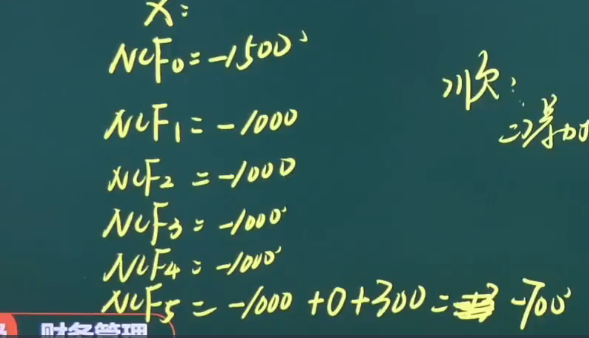 X:
NCF₀=-1500
NCF₁=-1000
NCF₂=-1000
NCF₃=-1000
NCF₄=-1000
NCF₅=-1000+0+300=-700
财务管理